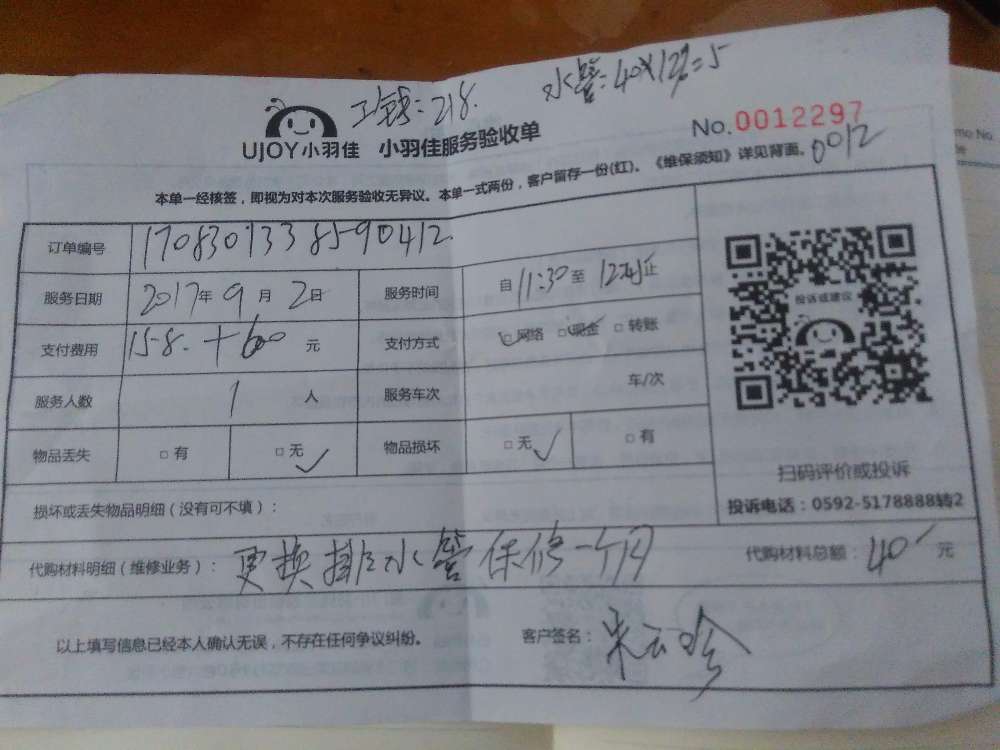 工钱:218.
水管:40×1.28=5
UJOY小羽佳 小羽佳服务验收单
No.0012297
0012
本单一经核签,即视为对本次服务验收无异议。本单一式两份,客户留存一份(红)。《维保须知》详见背面。
订单编号 170830133859 0412
服务日期 2017年9月2日 服务时间 自11:30至12
支付费用 158.+600元 支付方式 □网络 □现金 □转账
服务人数 1人 服务车次 车/次
物品丢失 □有 □无 物品损坏 □无 □有
投诉或建议
扫码评价或投诉
投诉电话:0592-5178888转2
损坏或丢失物品明细(没有可不填):
代购材料明细(维修业务): 更换排水管保修一个月 代购材料总额:40元
以上填写信息已经本人确认无误,不存在任何争议纠纷。 客户签名:朱云吟